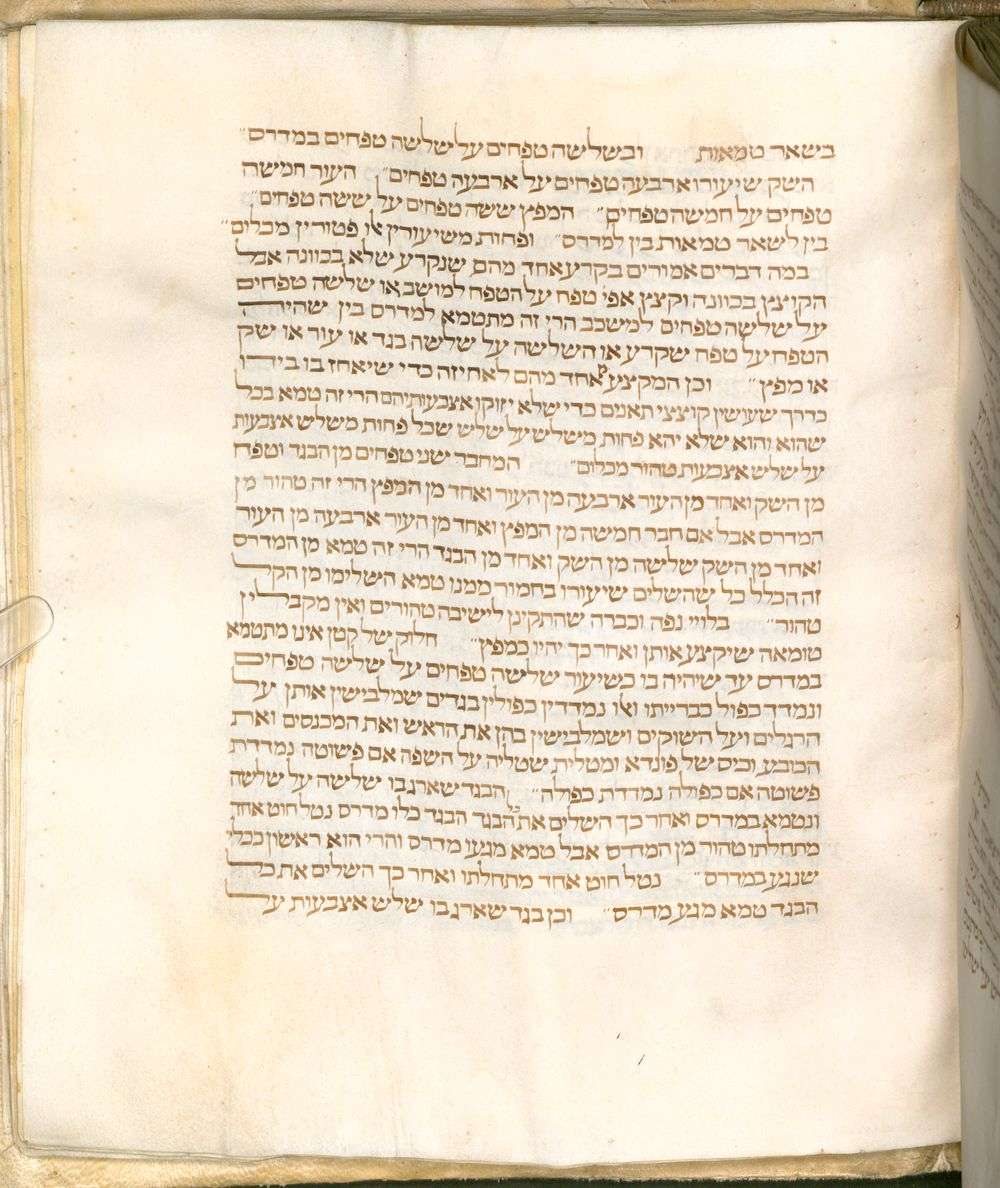 בשאר טמאות ובשלשה טפחים על שלשה טפחים במדרס״
השק שיעורו ארבעה טפחים על ארבעה טפחים״ העור חמישה
טפחים על חמשה טפחים״ המפץ ששה טפחים על ששה טפחים״
בין לשאר טמאות בין למדרס״ ופחות משיעורין אלו פטורין מכלום״
במה דברים אמורים בקרע אחד מהם שנקרע שלא בכוונה אבל
הקוצץ בכוונה וקצץ אפי׳ טפח על הטפח למושב או שלשה טפחים
על שלשה טפחים למשכב הרי זה מתטמא למדרס בין שהיה
הטפח על טפח שקרע או השלשה על שלשה בגד או עור או שק
או מפץ״ וכן המקצע אחד מהם לאחיזה כדי שיאחז בו בידו
כדרך שעושין קוצצי תאנים כדי שלא יזוקו אצבעותיהם הרי זה טמא בכל
שהוא והוא שלא יהא פחות משלש על שלש שכל פחות משלש אצבעות
על שלש אצבעות טהור מכלום״ המחבר שני טפחים מן הבגד וטפח
מן השק ואחד מן העור ארבעה מן העור ואחד מן המפץ הרי זה טהור מן
המדרס אבל אם חבר חמישה מן המפץ ואחד מן העור ארבעה מן העור
ואחד מן השק שלישה מן השק ואחד מן הבגד הרי זה טמא מן המדרס
זה הכלל כל שהשלים שיעורו בחמור ממנו טמא השלימו מן הקל
טהור״ בלויי נפה וכברה שהתקינן לישיבה טהורים ואין מקבלין
טומאה שיקצע אותן ואחר כך יהיו כמפץ״ חלוק של קטן אינו מתטמא
במדרס עד שיהיה בו כשיעור שלישה טפחים על שלישה טפחים
ונמדד כפול כברייתו ואלו נמדדין כפולין בגדים שמלבישין אותן על
הרגלים ועל השוקים וישמלבישין בהן את הראש ואת המכנסים ואת
הכובע וכיס של פונדא ומטלית שטליה על השפה אם פשוטה נמדדת
פשוטה אם כפולה נמדדת כפולה״ הבגד שארג בו שלישה על שלשה
ונטמא במדרס ואחר כך השלים את כל הבגד הבגד כלו מדרס נטל חוט אחד
מתחלתו טהור מן המדרס אבל טמא מגע מדרס והרי הוא ראשון ככלי
שנגע במדרס״ נטל חוט אחד מתחלתו ואחר כך השלים את כל
הבגד טמא מגע מדרס״ וכן בגד שארג בו שלש אצבעות על